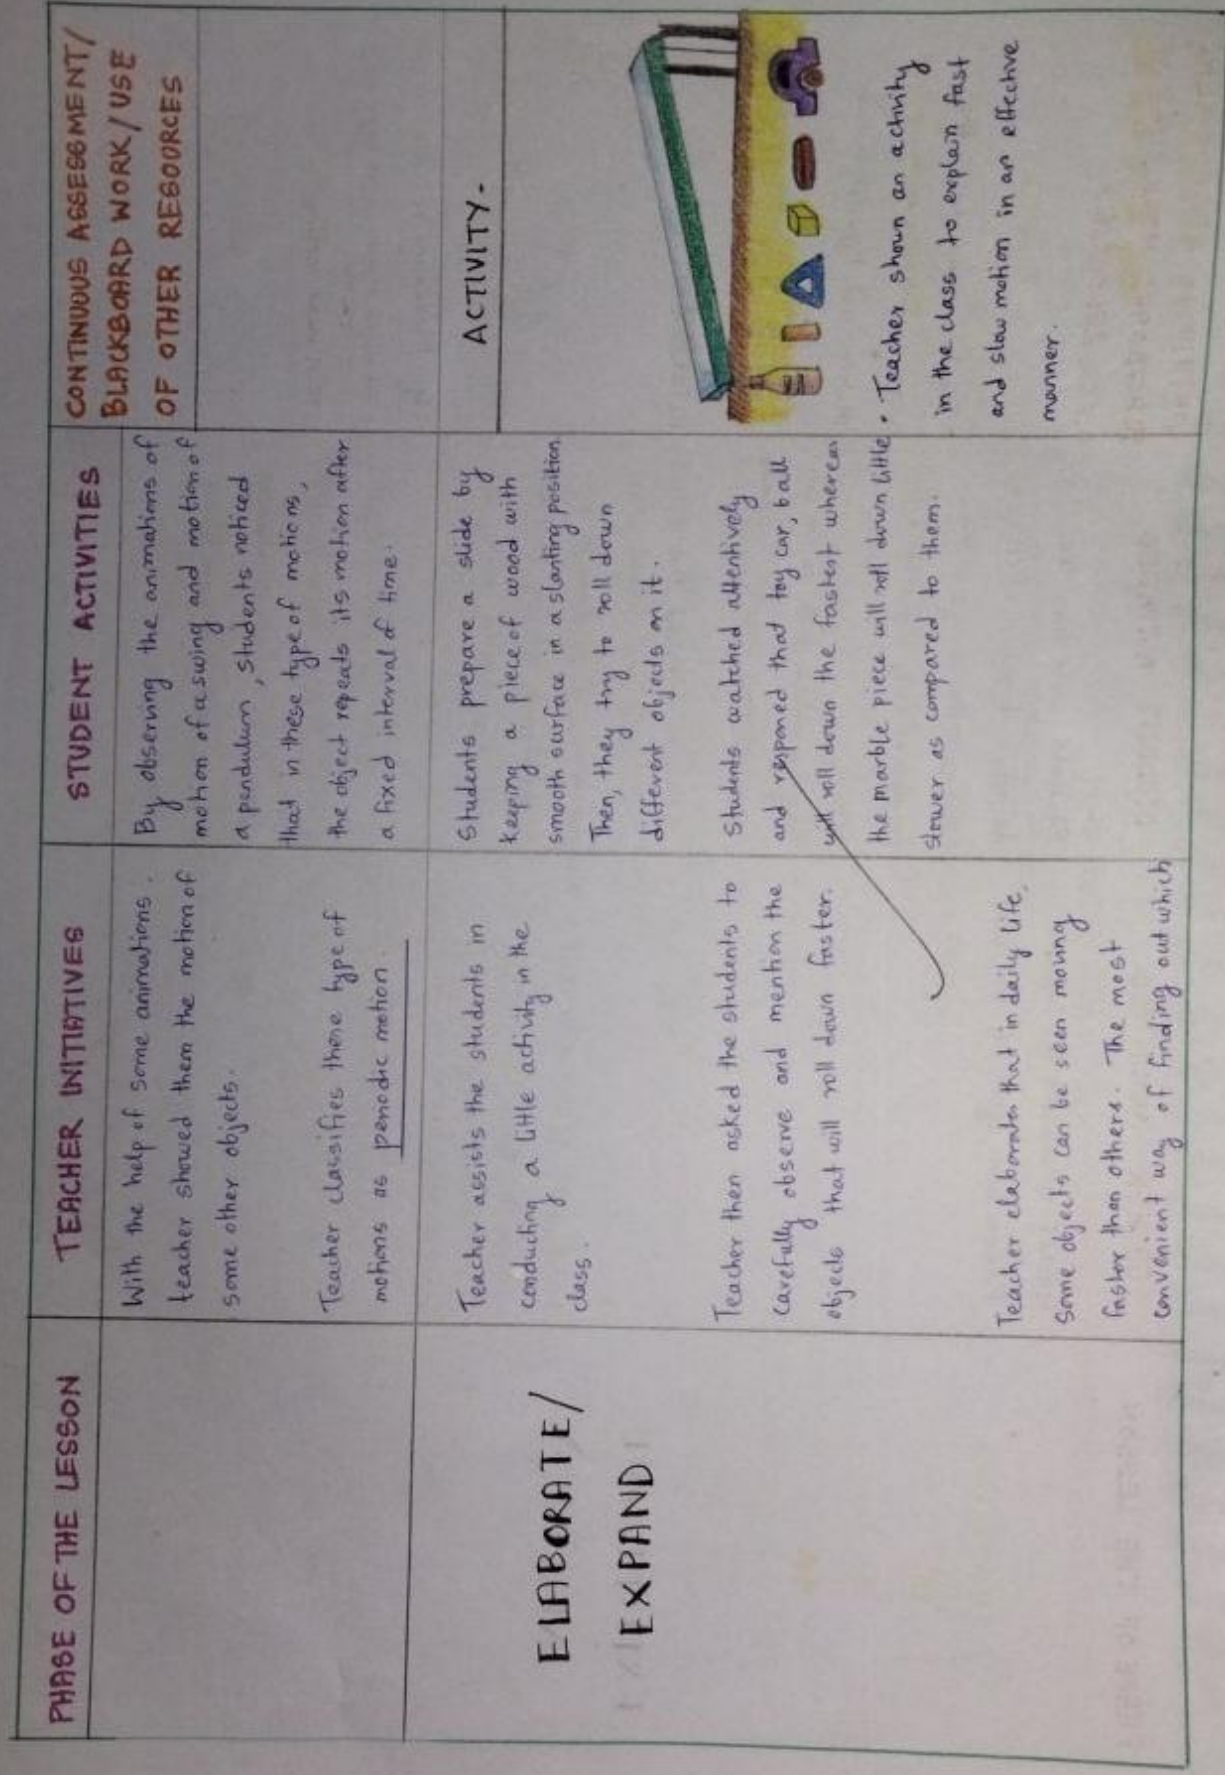 PHASE OF THE LESSON
TEACHER INITIATIVES
STUDENT ACTIVITIES
CONTINUOUS ASSESSMENT/
BLACKBOARD WORK/USE
OF OTHER RESOURCES
With the help of some animations.
teacher showed them the motion of
some other objects.
Teacher classifies these type of
motions as periodic motion.
By observing the animations of
motion of a swing and motion of
a pendulum, students noticed
that in these type of motions,
the object repeats its motion after
a fixed interval of time.
ELABORATE/
EXPAND
Teacher assists the students in
conducting a little activity in the
class.
Teacher then asked the students to
carefully observe and mention the
objects that will roll down faster.
Teacher elaborates that in daily life,
some objects can be seen moving
faster than others. The most
convenient way of finding out which
Students prepare a slide by
keeping a piece of wood with
smooth surface in a slanting position
Then, they try to roll down
different objects on it.
Students watched attentively
and responed that toy car, ball
will roll down the fastest whereas
the marble piece will roll down little
slower as compared to them.
ACTIVITY.
• Teacher shown an activity
in the class to explain fast
and slow motion in an effective
manner.